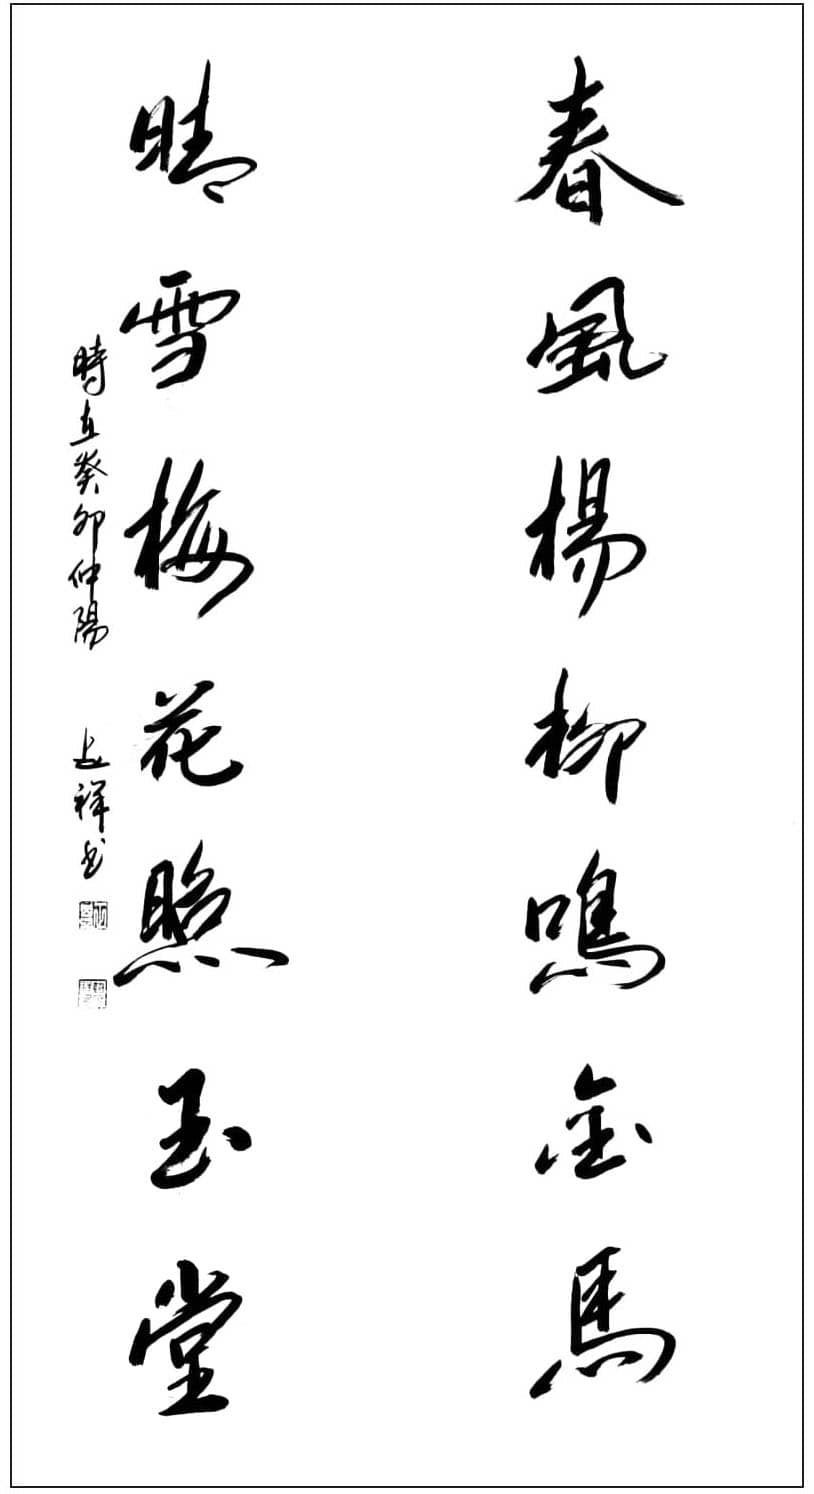 春風楊柳鳴金馬
晴雪梅花照玉堂
時在癸卯仲陽
祥书